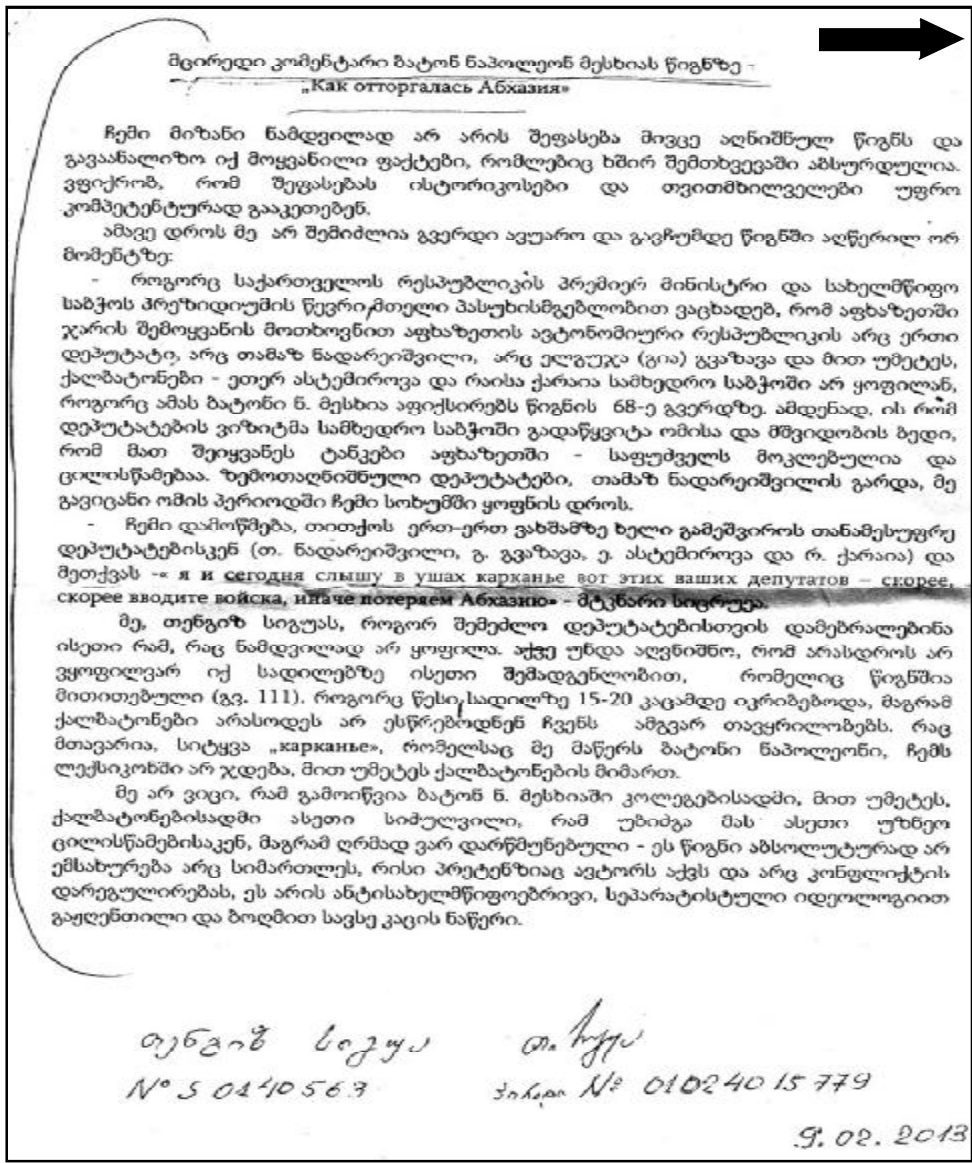 მცირედი კომენტარი ბატონ ნაპოლეონ მესხიას წიგნზე -
„Как отторгалась Абхазия»
ჩემი მიზანი ნამდვილად არ არის შეფასება მივცე აღნიშნულ წიგნს და
გავაანალიზო იქ მოყვანილი ფაქტები, რომლებიც ხშირ შემთხვევაში აბსურდულია.
ვფიქრობ, რომ შეფასებას ისტორიკოსები და თვითმხილველები უფრო
კომპეტენტურად გააკეთებენ.
ამავე დროს მე არ შემიძლია გვერდი ავუარო და გავჩუმდე წიგნში აღწერილ ორ
მომენტზე:
- როგორც საქართველოს რესპუბლიკის პრემიერ მინისტრი და სახელმწიფო
საბჭოს პრეზიდიუმის წევრი, მთელი პასუხისმგებლობით ვაცხადებ, რომ აფხაზეთში
ჯარის შემოყვანის მოთხოვნით აფხაზეთის ავტონომიური რესპუბლიკის არც ერთი
დეპუტატი, არც თამაზ ნადარეიშვილი, არც ელგუჯა (გია) გვაზავა და მით უმეტეს,
ქალბატონები - ეთერ ასტემიროვა და რაისა ქარაია სამხედრო საბჭოში არ ყოფილან,
როგორც ამას ბატონი ნ. მესხია აფიქსირებს წიგნის 68-ე გვერდზე. ამდენად, ის რომ
დეპუტატების ვიზიტმა სამხედრო საბჭოში გადაწყვიტა ომისა და მშვიდობის ბედი,
რომ მათ შეიყვანეს ტანკები აფხაზეთში - საფუძველს მოკლებულია და
ცილისწამებაა. ზემოთაღნიშნული დეპუტატები, თამაზ ნადარეიშვილის გარდა, მე
გავიცანი ომის პერიოდში ჩემი სოხუმში ყოფნის დროს.
- ჩემი დამოწმება, თითქოს ერთ-ერთ ვახშამზე ხელი გამეშვიროს თანამესუფრე
დეპუტატებისკენ (თ. ნადარეიშვილი, გ. გვაზავა, ე. ასტემიროვა და რ. ქარაია) და
მეთქვას -« я и сегодня слышу в ушах карканье вот этих ваших депутатов – скорее,
скорее вводите войска, иначе потеряем Абхазию» - მტკნარი სიცრუეა.
მე, თენგიზ სიგუას, როგორ შემეძლო დეპუტატებისთვის დამებრალებინა
ისეთი რამ, რაც ნამდვილად არ ყოფილა. აქვე უნდა აღვნიშნო, რომ არასდროს არ
ვყოფილვარ იქ სადილებზე ისეთი შემადგენლობით, რომელიც წიგნშია
მითითებული (გვ. 111). როგორც წესი, სადილზე 15-20 კაცამდე იკრიბებოდა, მაგრამ
ქალბატონები არასოდეს არ ესწრებოდნენ ჩვენს ამგვარ თავყრილობებს. რაც
მთავარია, სიტყვა „карканье», რომელსაც მე მაწერს ბატონი ნაპოლეონი, ჩემს
ლექსიკონში არ ჯდება, მით უმეტეს ქალბატონების მიმართ.
მე არ ვიცი, რამ გამოიწვია ბატონ ნ. მესხიაში კოლეგებისადმი, მით უმეტეს,
ქალბატონებისადმი ასეთი სიძულვილი, რამ უბიძგა მას ასეთი უზნეო
ცილისწამებისაკენ, მაგრამ ღრმად ვარ დარწმუნებული - ეს წიგნი აბსოლუტურად არ
ემსახურება არც სიმართლეს, რისი პრეტენზიაც ავტორს აქვს და არც კონფლიქტის
დარეგულირებას, ეს არის ანტისახელმწიფოებრივი, სეპარატისტული იდეოლოგიით
გაჟღენთილი და ბოღმით სავსე კაცის ნაწერი.
თენგიზ სიგუა თ. სიგუა
N° S 0140563 პირადი № 01024015779
9. 02. 2013